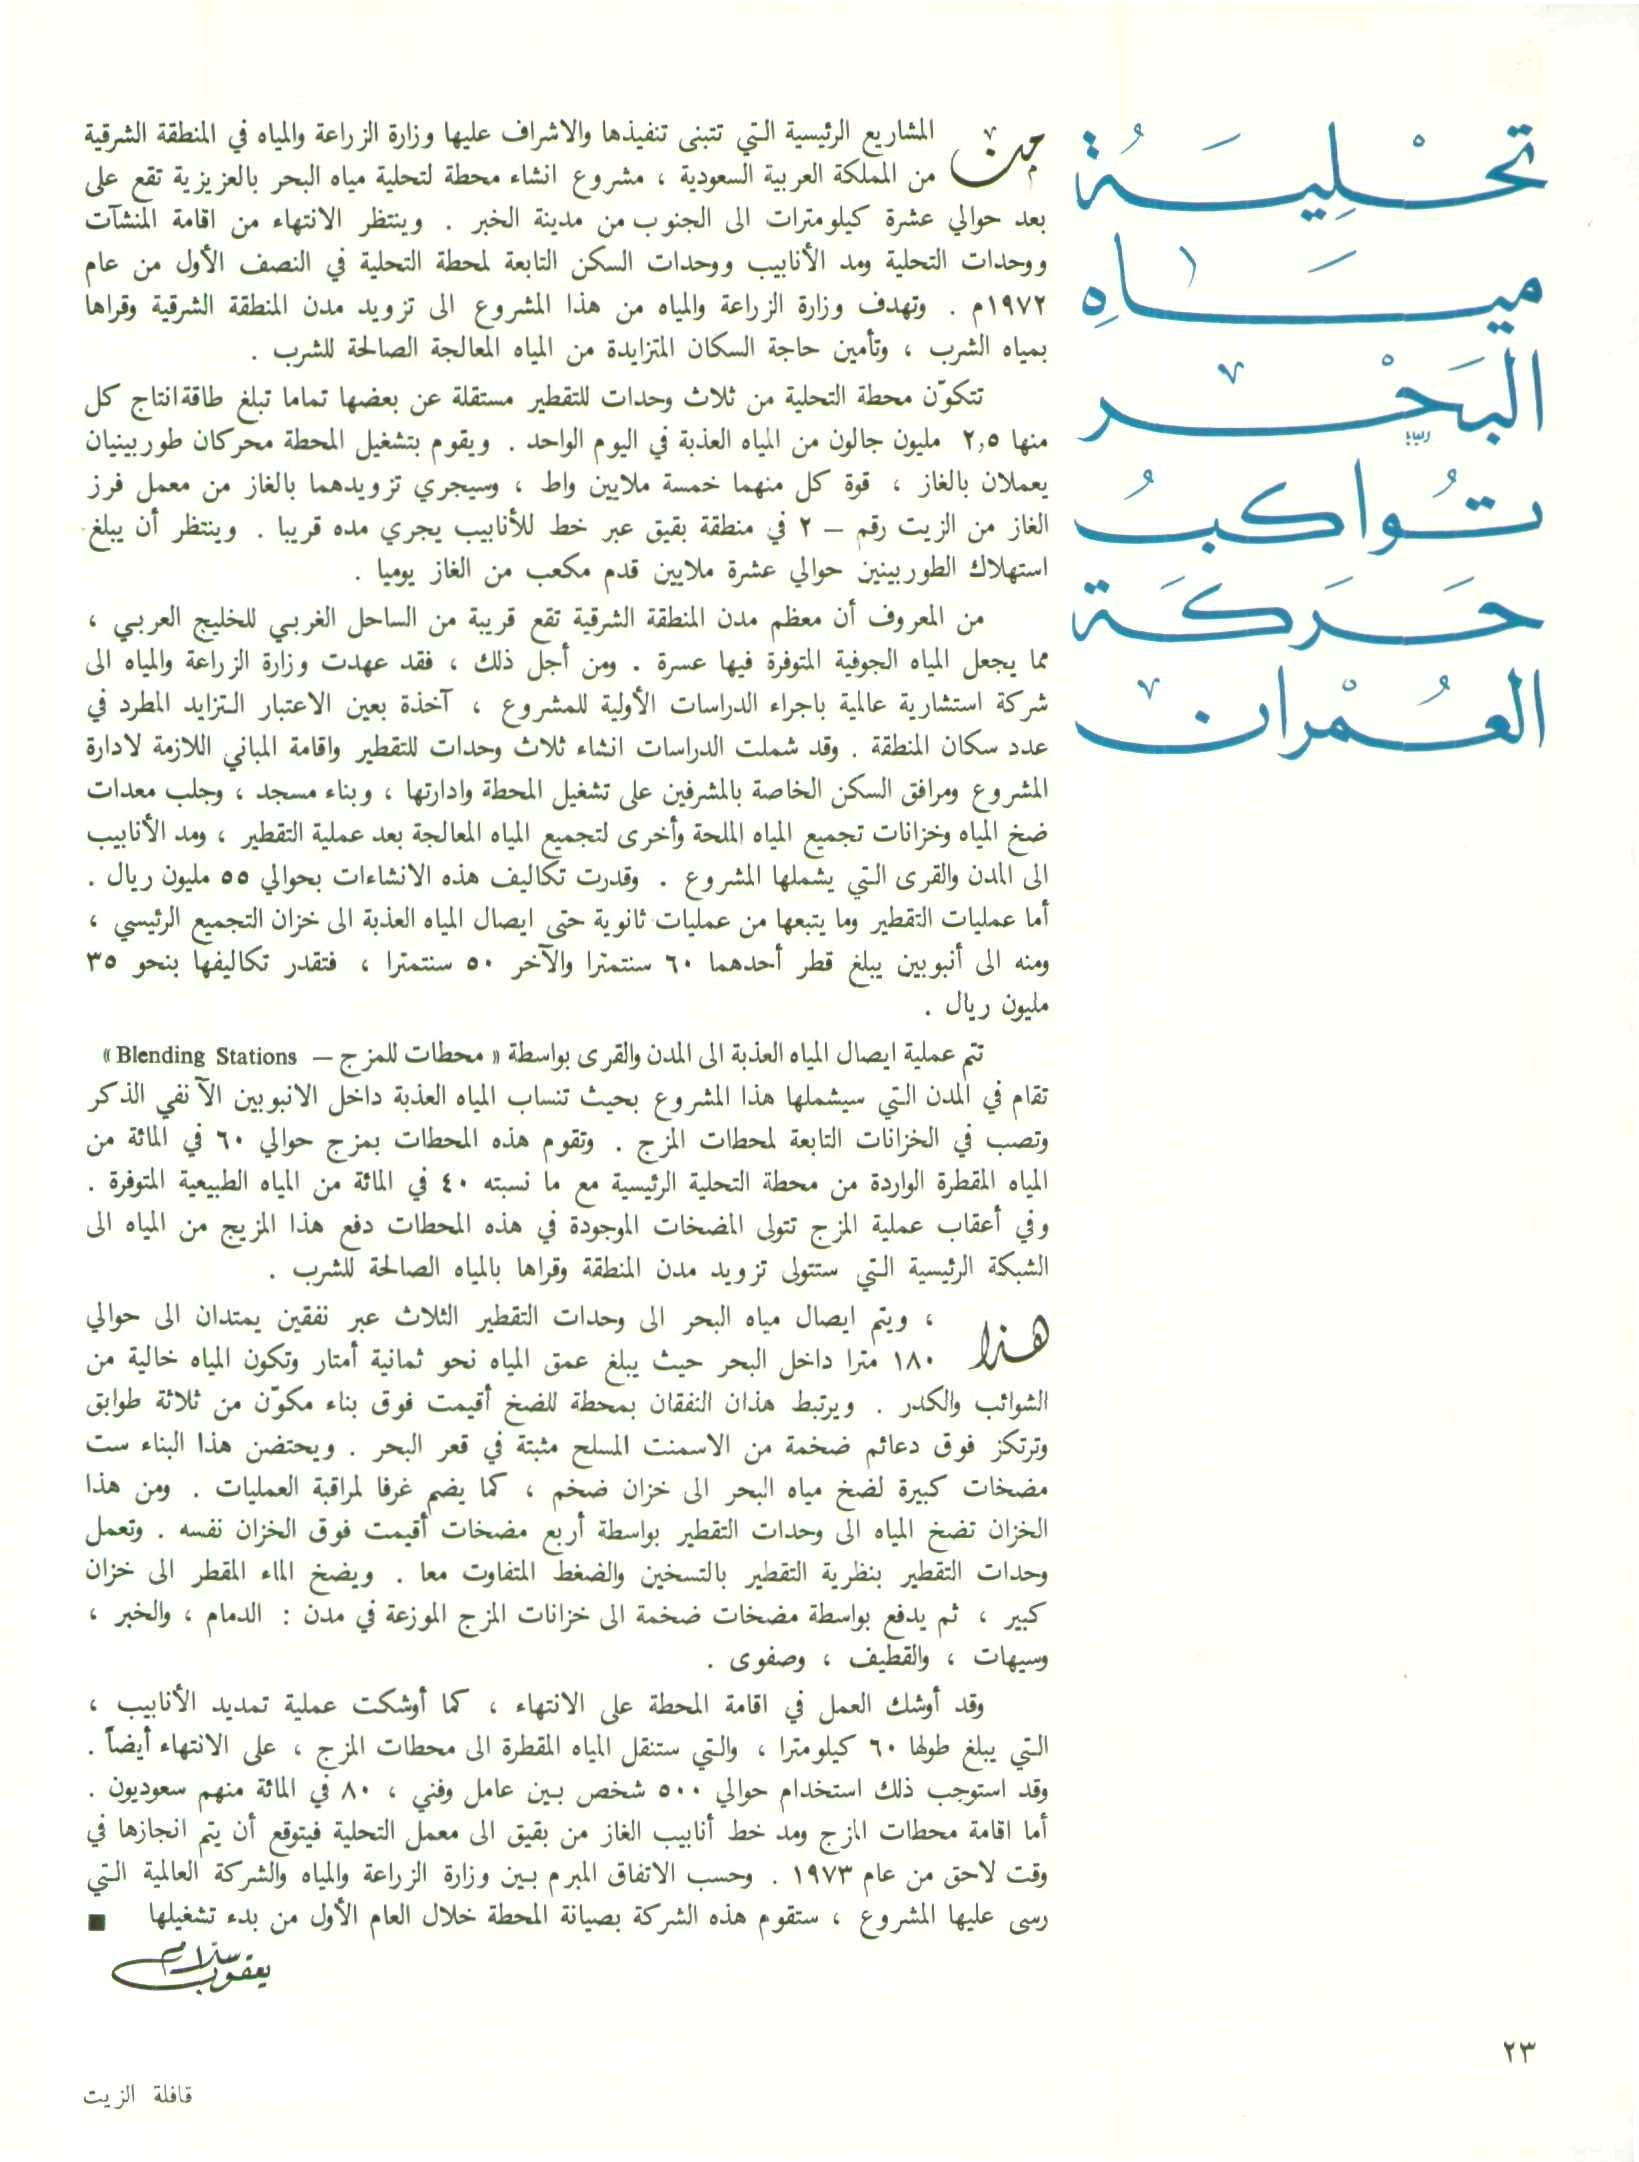 تحلية
مياه
البحر
تواكب
حركة
العمران
من المشاريع الرئيسية التي تتبنى تنفيذها والاشراف عليها وزارة الزراعة والمياه في المنطقة الشرقية
من المملكة العربية السعودية ، مشروع انشاء محطة لتحلية مياه البحر بالعزيزية تقع على
بعد حوالي عشرة كيلومترات الى الجنوب من مدينة الخبر . وينتظر الانتهاء من اقامة المنشآت
ووحدات التحلية ومد الأنابيب ووحدات السكن التابعة لمحطة التحلية في النصف الأول من عام
١٩٧٢م . وتهدف وزارة الزراعة والمياه من هذا المشروع الى تزويد مدن المنطقة الشرقية وقراها
بمياه الشرب ، وتأمين حاجة السكان المتزايدة من المياه المعالجة الصالحة للشرب .
تتكوّن محطة التحلية من ثلاث وحدات للتقطير مستقلة عن بعضها تماما تبلغ طاقة انتاج كل
منها ٢,٥ مليون جالون من المياه العذبة في اليوم الواحد . ويقوم بتشغيل المحطة محركان طوربينيان
يعملان بالغاز ، قوة كل منهما خمسة ملايين واط ، وسيجري تزويدهما بالغاز من معمل فرز
الغاز من الزيت رقم – ٢ في منطقة بقيق عبر خط للأنابيب يجري مده قريبا . وينتظر أن يبلغ
استهلاك الطوربينين حوالي عشرة ملايين قدم مكعب من الغاز يوميا .
من المعروف أن معظم مدن المنطقة الشرقية تقع قريبة من الساحل الغربي للخليج العربي ،
مما يجعل المياه الجوفية المتوفرة فيها عسرة . ومن أجل ذلك ، فقد عهدت وزارة الزراعة والمياه الى
شركة استشارية عالمية باجراء الدراسات الأولية للمشروع ، آخذة بعين الاعتبار التزايد المطرد في
عدد سكان المنطقة . وقد شملت الدراسات انشاء ثلاث وحدات للتقطير واقامة المباني اللازمة لادارة
المشروع ومرافق السكن الخاصة بالمشرفين على تشغيل المحطة وادارتها ، وبناء مسجد ، وجلب معدات
ضخ المياه وخزانات تجميع المياه الملحة وأخرى لتجميع المياه المعالجة بعد عملية التقطير ، ومد الأنابيب
الى المدن والقرى التي يشملها المشروع . وقدرت تكاليف هذه الانشاءات بحوالي ٥٥ مليون ريال .
أما عمليات التقطير وما يتبعها من عمليات ثانوية حتى ايصال المياه العذبة الى خزان التجميع الرئيسي ،
ومنه الى أنبوبين يبلغ قطر أحدهما ٦٠ سنتمترا والآخر ٥٠ سنتمترا ، فتقدر تكاليفها بنحو ٣٥
مليون ريال .
تتم عملية ايصال المياه العذبة الى المدن والقرى بواسطة « محطات للمزج – Blending Stations »
تقام في المدن التي سيشملها هذا المشروع بحيث تنساب المياه العذبة داخل الانبوبين الآنفي الذكر
وتصب في الخزانات التابعة لمحطات المزج . وتقوم هذه المحطات بمزج حوالي ٦٠ في المائة من
المياه المقطرة الواردة من محطة التحلية الرئيسية مع ما نسبته ٤٠ في المائة من المياه الطبيعية المتوفرة .
وفي أعقاب عملية المزج تتولى المضخات الموجودة في هذه المحطات دفع هذا المزيج من المياه الى
الشبكة الرئيسية التي ستتولى تزويد مدن المنطقة وقراها بالمياه الصالحة للشرب .
هذا ، ويتم ايصال مياه البحر الى وحدات التقطير الثلاث عبر نفقين يمتدان الى حوالي
١٨٠ مترا داخل البحر حيث يبلغ عمق المياه نحو ثمانية أمتار وتكون المياه خالية من
الشوائب والكدر . ويرتبط هذان النفقان بمحطة للضخ أقيمت فوق بناء مكوّن من ثلاثة طوابق
وترتكز فوق دعائم ضخمة من الاسمنت المسلح مثبتة في قعر البحر . ويحتضن هذا البناء ست
مضخات كبيرة لضخ مياه البحر الى خزان ضخم ، كما يضم غرفا لمراقبة العمليات . ومن هذا
الخزان تضخ المياه الى وحدات التقطير بواسطة أربع مضخات أقيمت فوق الخزان نفسه . وتعمل
وحدات التقطير بنظرية التقطير بالتسخين والضغط المتفاوت معا . ويضخ الماء المقطر الى خزان
كبير ، ثم يدفع بواسطة مضخات ضخمة الى خزانات المزج الموزعة في مدن : الدمام ، والخبر ،
وسيهات ، والقطيف ، وصفوى .
وقد أوشك العمل في اقامة المحطة على الانتهاء ، كما أوشكت عملية تمديد الأنابيب ،
التي يبلغ طولها ٦٠ كيلومترا ، والتي ستنقل المياه المقطرة الى محطات المزج ، على الانتهاء أيضاً .
وقد استوجب ذلك استخدام حوالي ٥٠٠ شخص بين عامل وفني ، ٨٠ في المائة منهم سعوديون .
أما اقامة محطات المزج ومد خط أنابيب الغاز من بقيق الى معمل التحلية فيتوقع أن يتم انجازها في
وقت لاحق من عام ١٩٧٣ . وحسب الاتفاق المبرم بين وزارة الزراعة والمياه والشركة العالمية التي
رسى عليها المشروع ، ستقوم هذه الشركة بصيانة المحطة خلال العام الأول من بدء تشغيلها ■
يعقوب سلام
٢٣
قافلة الزيت